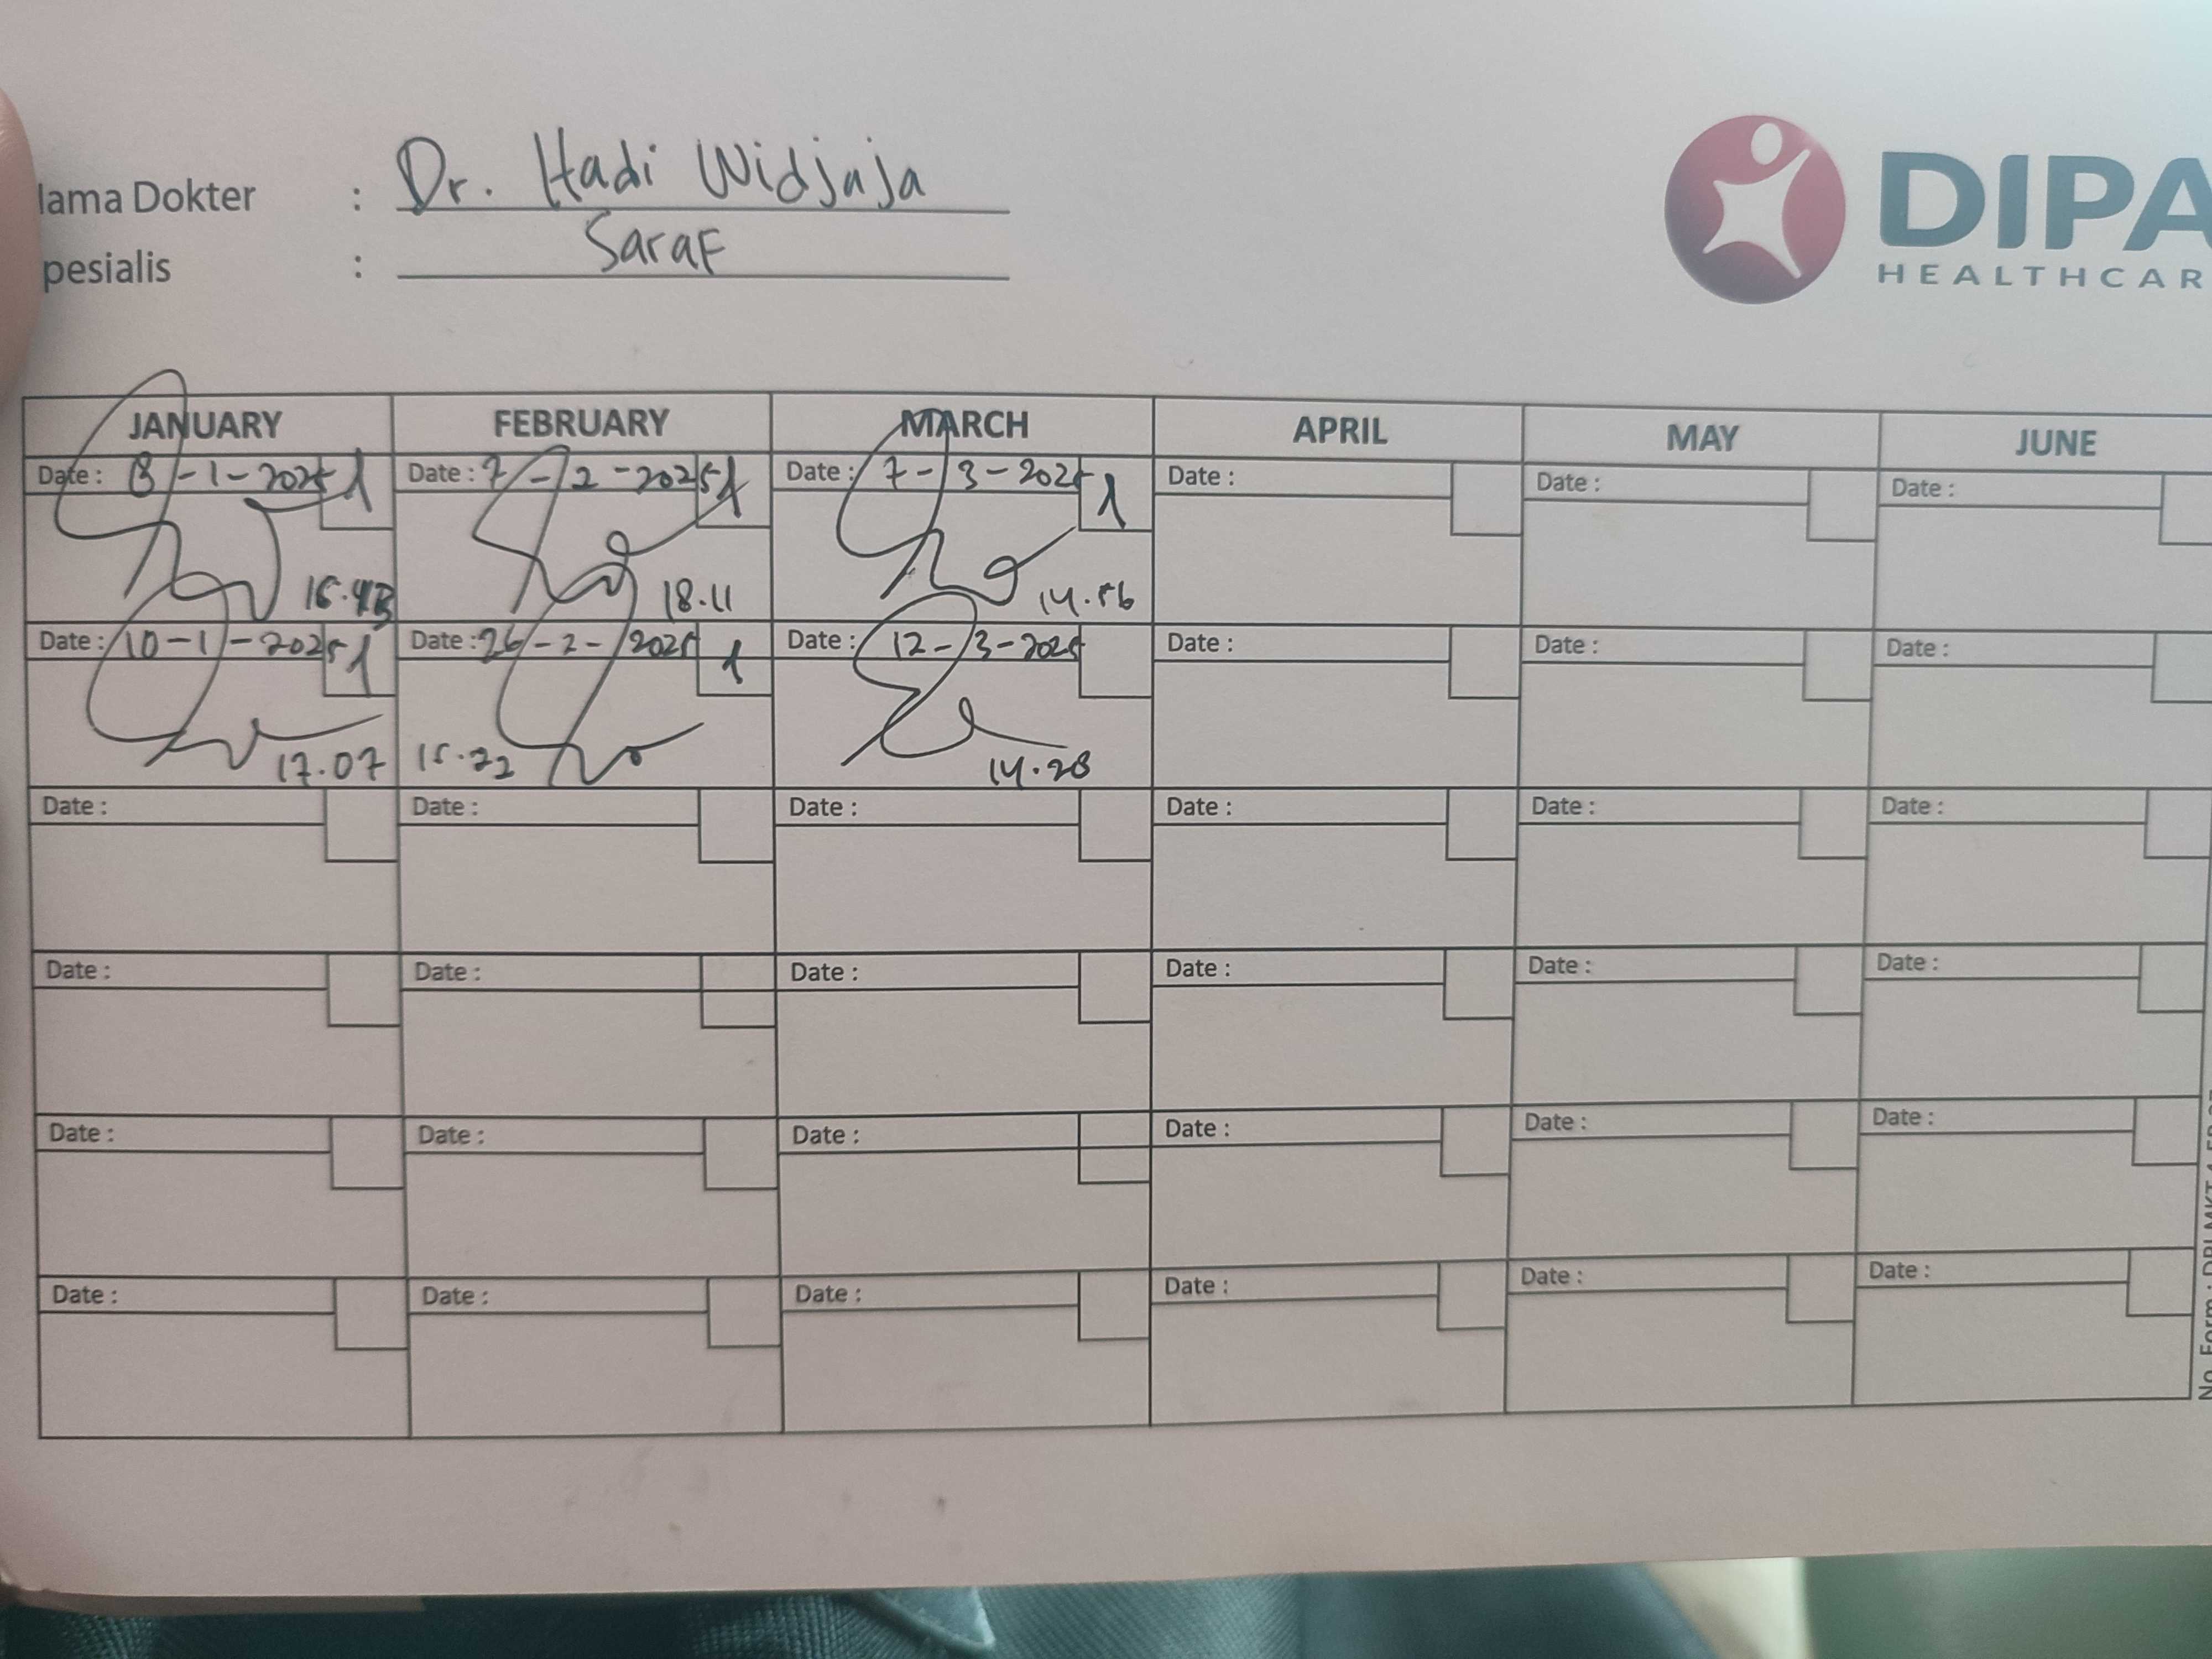 lama Dokter : Dr. Hadi Widjaja
pesialis : Saraf
DIPA
HEALTHCAR
JANUARY FEBRUARY MARCH APRIL MAY JUNE
Date : 8-1-2025 Date : 7-2-2025 Date : 7-3-2025 Date : Date : Date :
18.11 14.56
Date : 10-1-2025 Date : 26-2-2025 Date : 12-3-2025 Date : Date : Date :
17.07 15.22 14.28
Date : Date : Date : Date : Date : Date :
Date : Date : Date : Date : Date : Date :
Date : Date : Date : Date : Date : Date :
Date : Date : Date : Date : Date : Date :
No. Form :